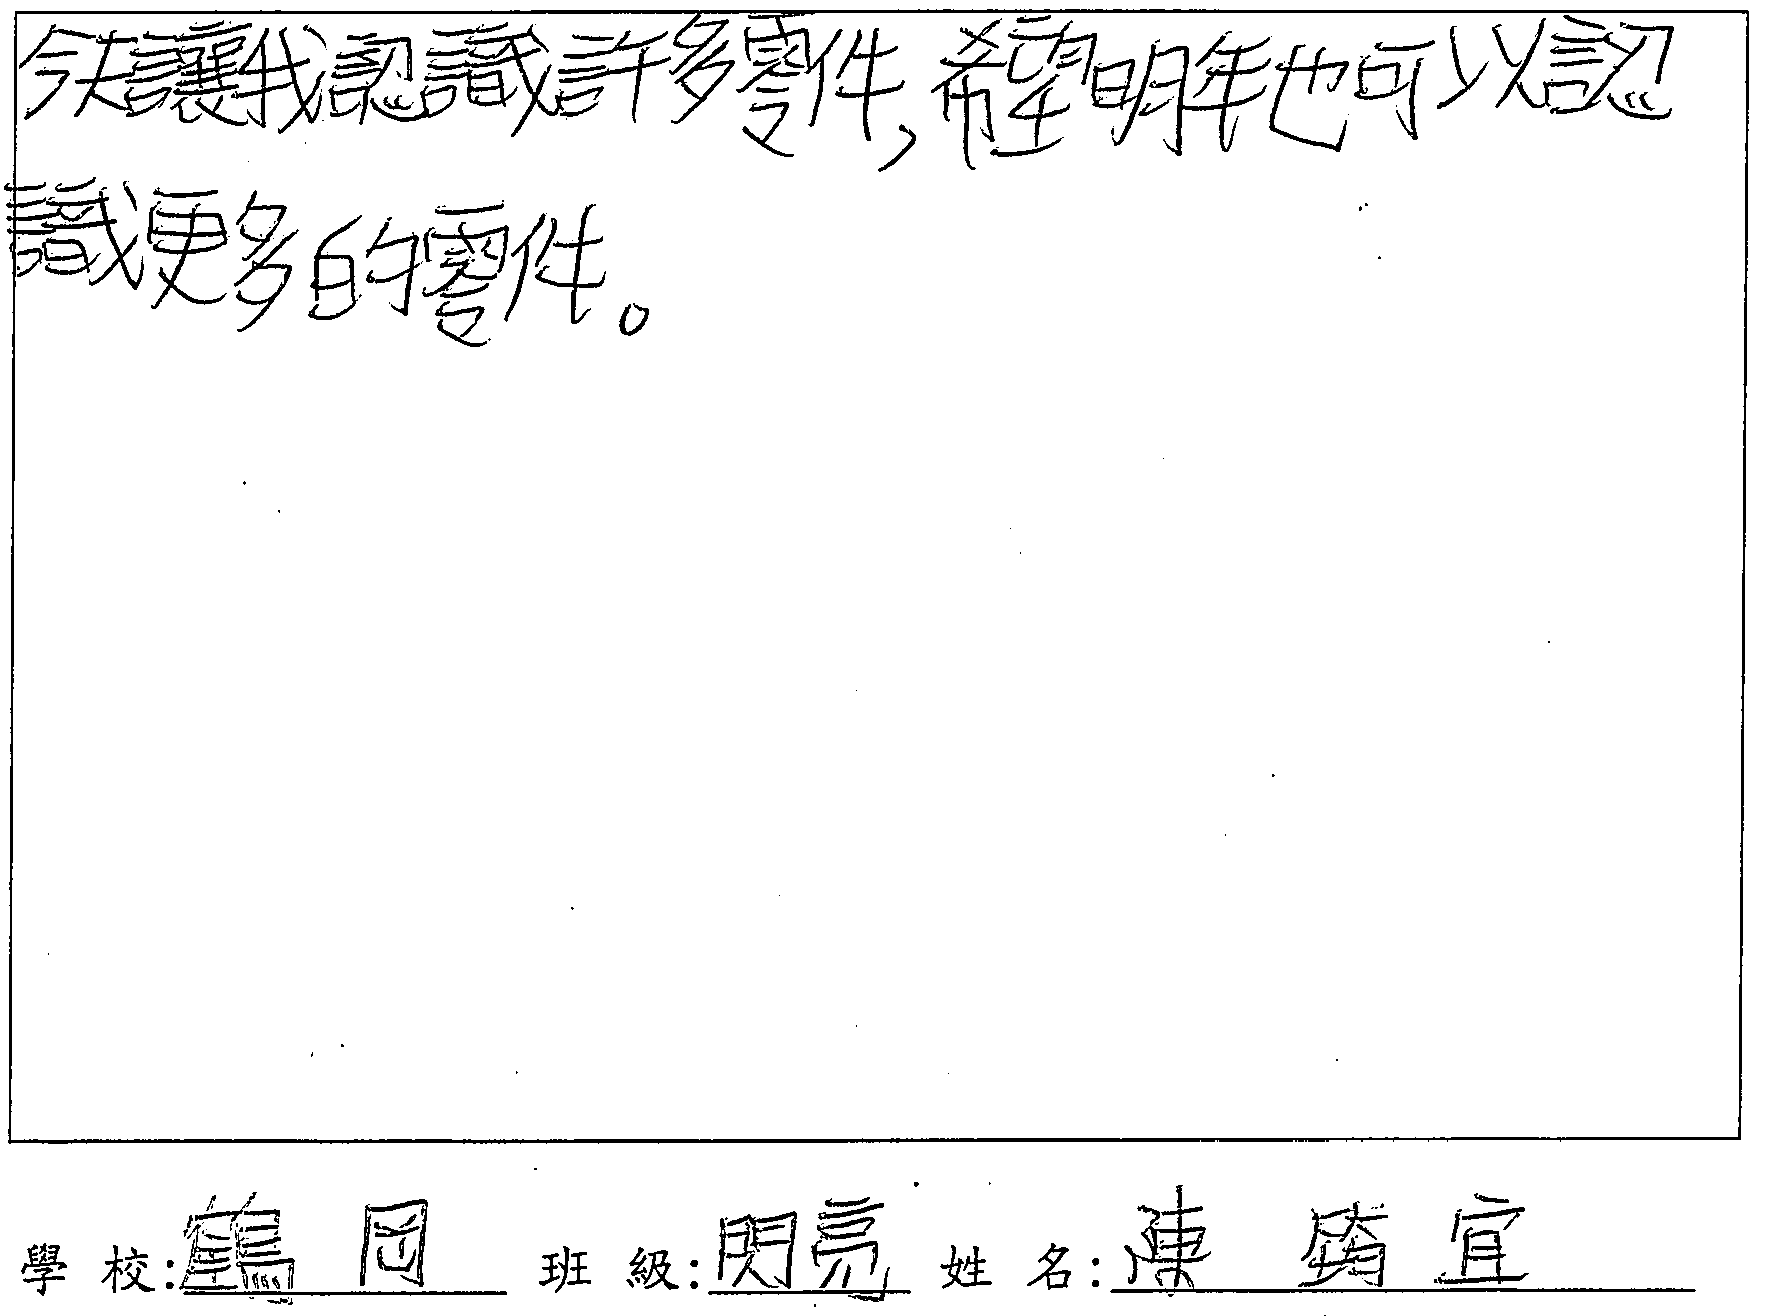 今天讓我認識許多零件，希望明年也可以認
識更多的零件。
學 校:鶴 岡 班 級:閃亮 姓 名:陳 宜